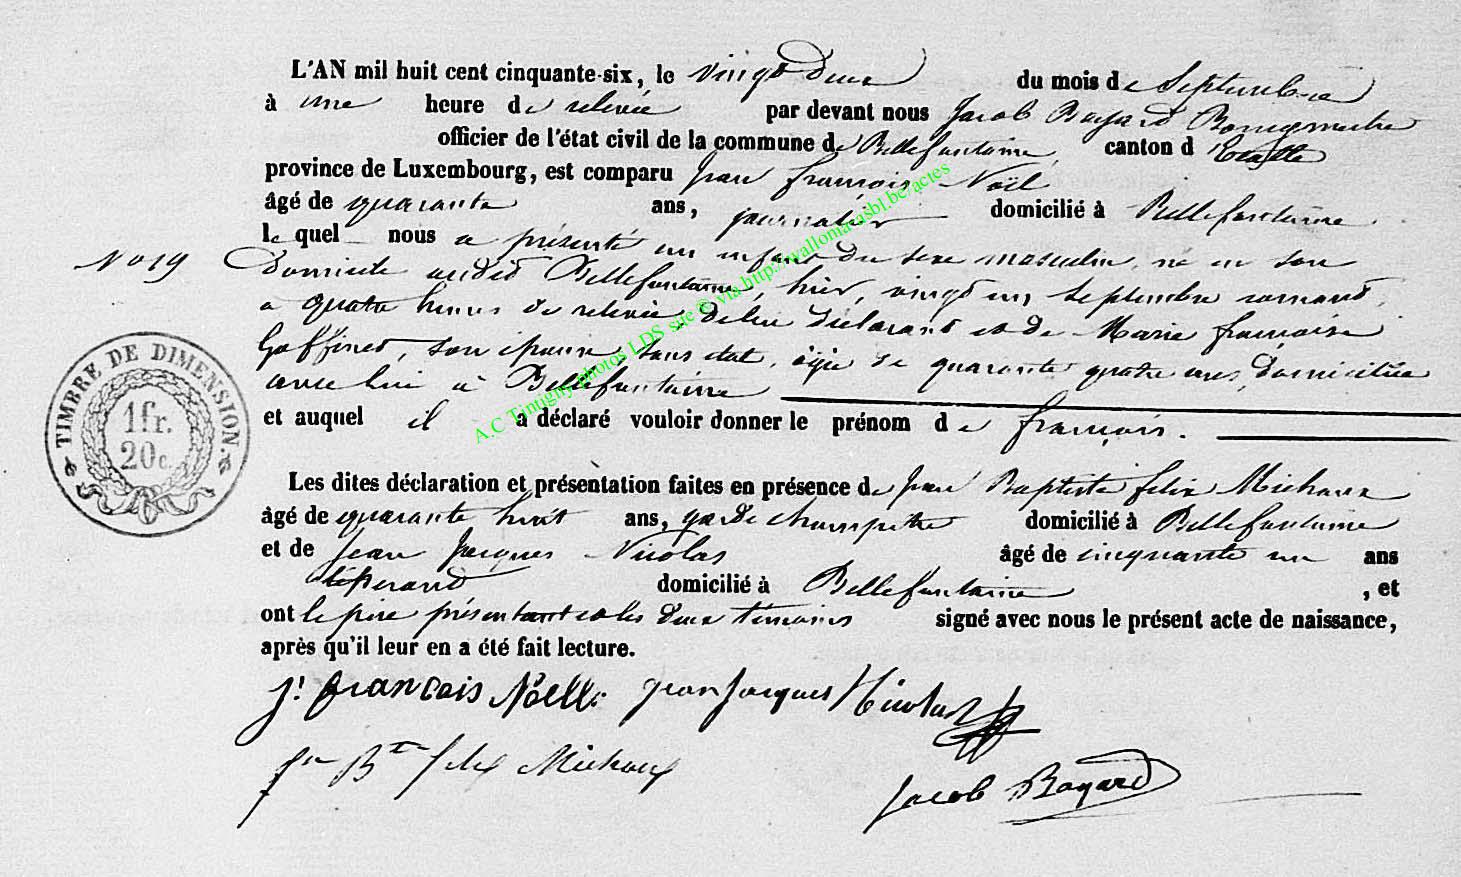 L'AN mil huit cent cinquante-six, le vingt deux du mois de Septembre
à une heure de relevée par devant nous Jacob Bayard Bourgmestre
officier de l'état civil de la commune de Bellefontaine, canton d'Etalle
province de Luxembourg, est comparu Jean françois Noël
âgé de quarante ans, journalier domicilié à Bellefontaine
le quel nous a présenté un enfant du sexe masculin, né en son
N° 19
domicile audit Bellefontaine, hier, vingt un Septembre courant,
à quatre heures de relevée, de lui déclarant et de Marie françoise
Goffinet, son épouse, sans état, âgée de quarante quatre ans, domiciliée
avec lui à Bellefontaine
et auquel il a déclaré vouloir donner le prénom de françois.
TIMBRE DE DIMENSION.
1 fr.
20 c.
A.C Tintigny photos LDS site © via http://wallomac.asbl.be/actes
Les dites déclaration et présentation faites en présence de Jean Baptiste felix Michaux
âgé de quarante huit ans, garde champêtre domicilié à Bellefontaine
et de Jean Jacques Nicolas âgé de cinquante un ans
domicilié à Bellefontaine, et
ont le père présentant et les deux témoins signé avec nous le présent acte de naissance,
après qu'il leur en a été fait lecture.
J. françois Nöell. jean jacques Nicolas
jn Bte felix Michaux
Jacob Bayard